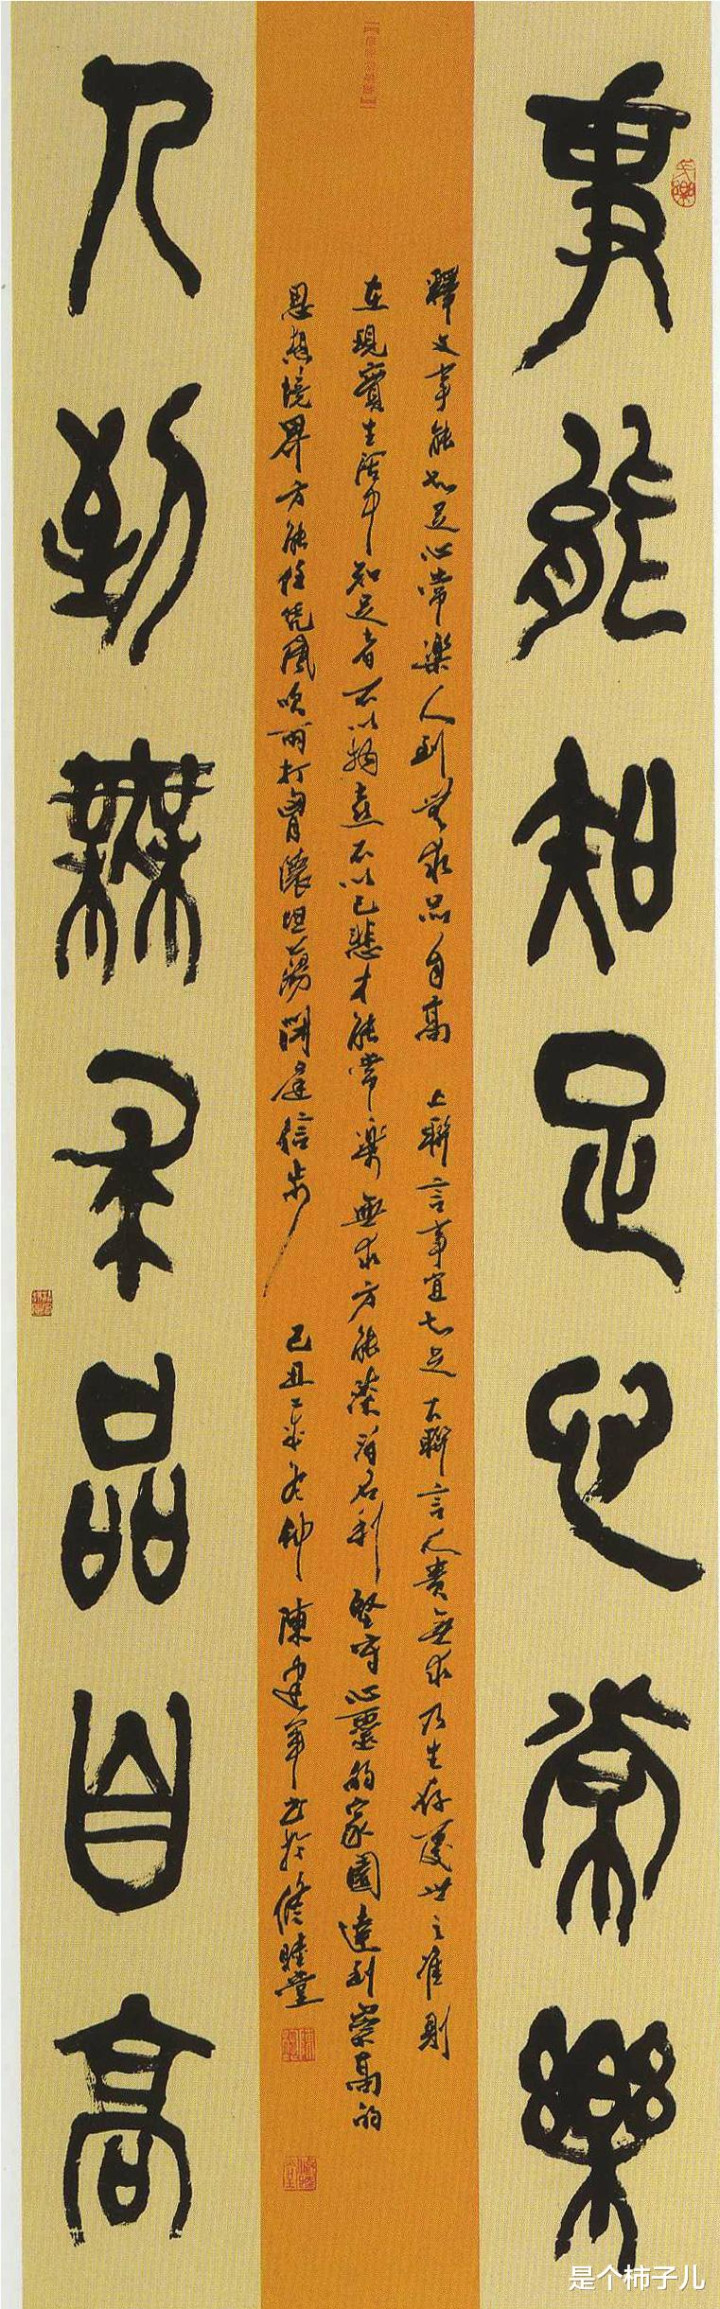 事能知足心常樂
釋文事能知足心常樂人到無求品自高 上聯言事宜知足下聯言人貴無求乃生存處世之准則
在現實生活中知足者不以物喜不以己悲才能常樂無求方能淡泊名利堅守心靈的家園達到崇高的
思想境界方能任凭風吹雨打胸懷坦蕩閑庭信步
己丑年冬仲陳建軍書於修睦堂
人到無求品自高
是个柿子儿